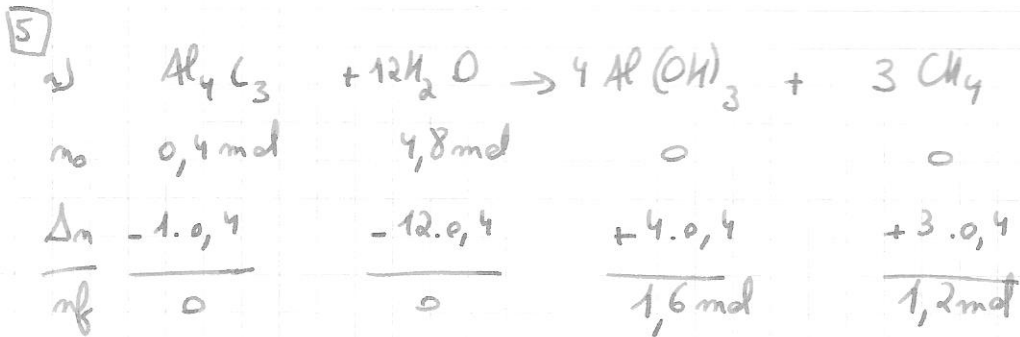 5
a) Al₄C₃ + 12H₂O → 4 Al(OH)₃ + 3 CH₄
n₀ 0,4 mol 4,8 mol 0 0
Δn -1.0,4 -12.0,4 +4.0,4 +3.0,4
nf 0 0 1,6 mol 1,2 mol